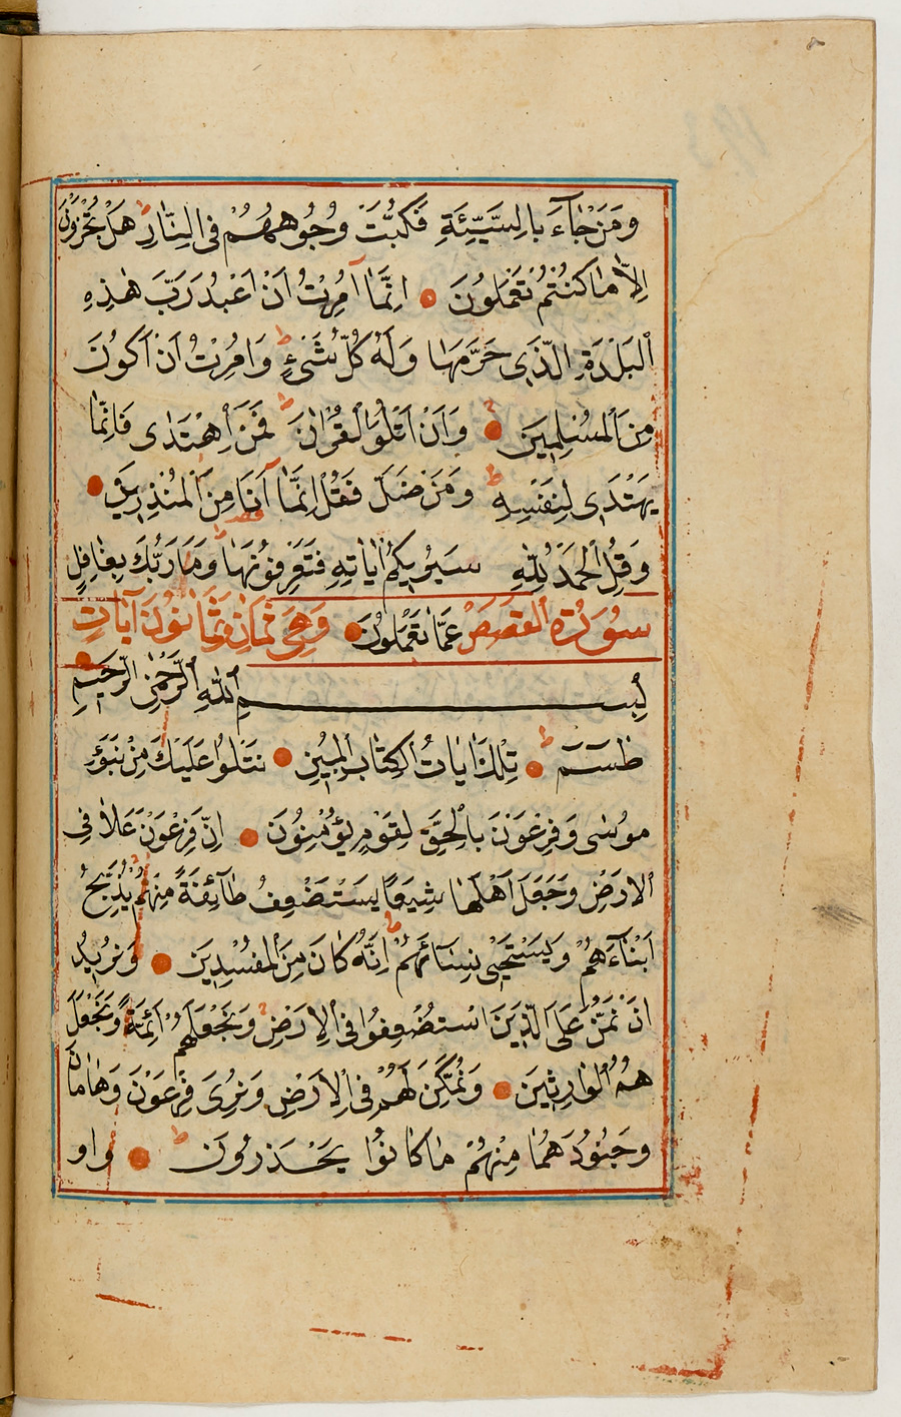 وَمَنْ جَآءَ بِالسَّيِّئَةِ فَكُبَّتْ وُجُوهُهُمْ فِى النَّارِ ط هَلْ تُجْزَوْنَ
اِلَّا مَا كُنْتُمْ تَعْمَلُونَ اِنَّمَآ اُمِرْتُ اَنْ اَعْبُدَ رَبَّ هٰذِهِ
الْبَلْدَةِ الَّذِى حَرَّمَهَا وَلَهُ كُلُّ شَىْءٍ ط وَاُمِرْتُ اَنْ اَكُونَ
مِنَ الْمُسْلِمِينَ وَاَنْ اَتْلُوَا الْقُرْاٰنَ ط فَمَنِ اهْتَدٰى فَاِنَّمَا
يَهْتَدِى لِنَفْسِهِ ط وَمَنْ ضَلَّ فَقُلْ اِنَّمَآ اَنَا مِنَ الْمُنْذِرِينَ
وَقُلِ الْحَمْدُ لِلّٰهِ سَيُرِيكُمْ اٰيَاتِهِ فَتَعْرِفُونَهَا ط وَمَا رَبُّكَ بِغَافِلٍ
سُورَةُ الْقَصَصِ عَمَّا تَعْمَلُونَ وَهِىَ ثَمَانٍ وَثَمَانُونَ آيَاتٍ
بِسْمِ اللّٰهِ الرَّحْمٰنِ الرَّحِيمِ
طٰسٓمٓ ط تِلْكَ اٰيَاتُ الْكِتَابِ الْمُبِينِ نَتْلُوا عَلَيْكَ مِنْ نَبَؤِ
مُوسٰى وَفِرْعَوْنَ بِالْحَقِّ لِقَوْمٍ يُؤْمِنُونَ اِنَّ فِرْعَوْنَ عَلَا فِى
الْاَرْضِ وَجَعَلَ اَهْلَهَا شِيَعًا يَسْتَضْعِفُ طَآئِفَةً مِنْهُمْ يُذَبِّحُ
اَبْنَآءَهُمْ وَيَسْتَحْيِى نِسَآئَهُمْ ط اِنَّهُ كَانَ مِنَ الْمُفْسِدِينَ وَنُرِيدُ
اَنْ نَمُنَّ عَلَى الَّذِينَ اسْتُضْعِفُوا فِى الْاَرْضِ وَنَجْعَلَهُمْ اَئِمَّةً وَنَجْعَلَ
هُمُ الْوَارِثِينَ وَنُمَكِّنَ لَهُمْ فِى الْاَرْضِ وَنُرِىَ فِرْعَوْنَ وَهَامَانَ
وَجُنُودَهُمَا مِنْهُمْ مَا كَانُوا يَحْذَرُونَ ط وَاَو